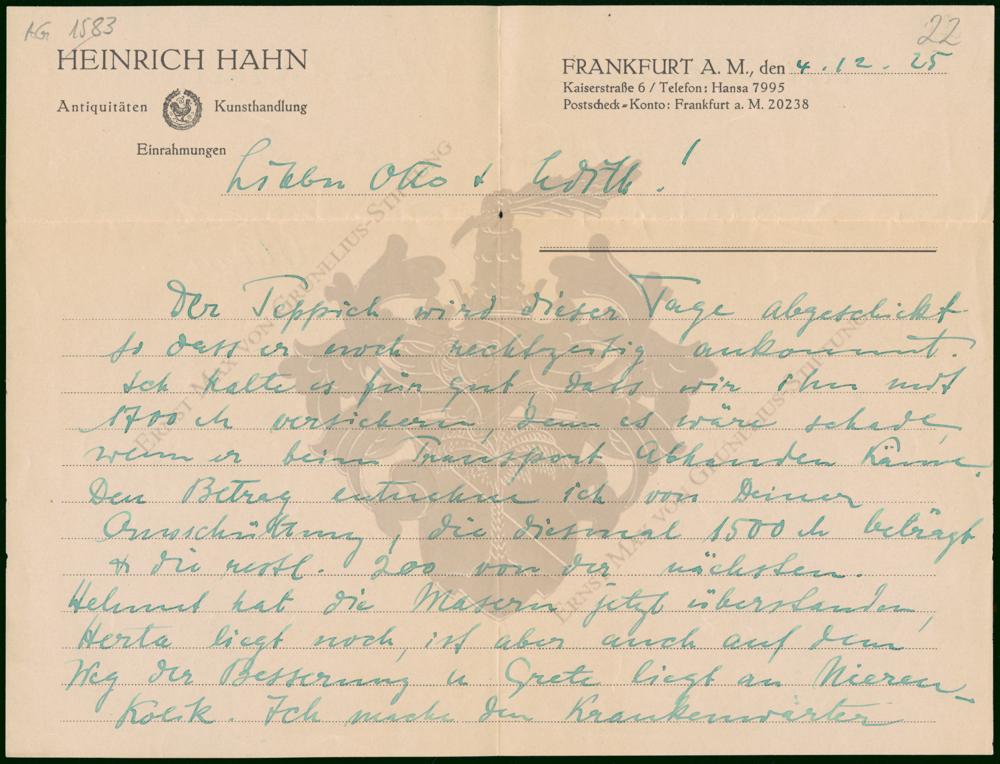 AG 1583
22
HEINRICH HAHN
Antiquitäten Kunsthandlung
Einrahmungen
FRANKFURT A. M., den 4.12.25
Kaiserstraße 6 / Telefon: Hansa 7995
Postscheck-Konto: Frankfurt a. M. 20238
Lieben Otto & Edith!
Der Teppich wird dieser Tage abgeschickt
so dass er noch rechtzeitig ankommt.
Ich halte es für gut, dass wir ihn mit
1700 M versichern, denn es wäre schade,
wenn er beim Transport abhanden käme.
Den Betrag entnehme ich von Deiner
Ausschüttung, die diesmal 1500 M beträgt
& die restl. 200 von der nächsten.
Helmut hat die Masern jetzt überstanden,
Herta liegt noch, ist aber auch auf dem
Weg der Besserung u Grete liegt an Nieren-
Kolik. Ich mache den Krankenwärter
ERNST MAX VON GRUNELIUS-STIFTUNG
ERNST MAX VON GRUNELIUS-STIFTUNG